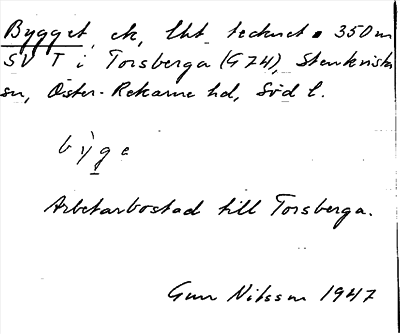 Bygget, ek, lht tecknet • 350 m
SV T i Torsberga (G 74), Stenkvista
sn, Öster-Rekarne hd, Söd l.
bỳge
Arbetarbostad till Torsberga.
Gun Nilsson 1947